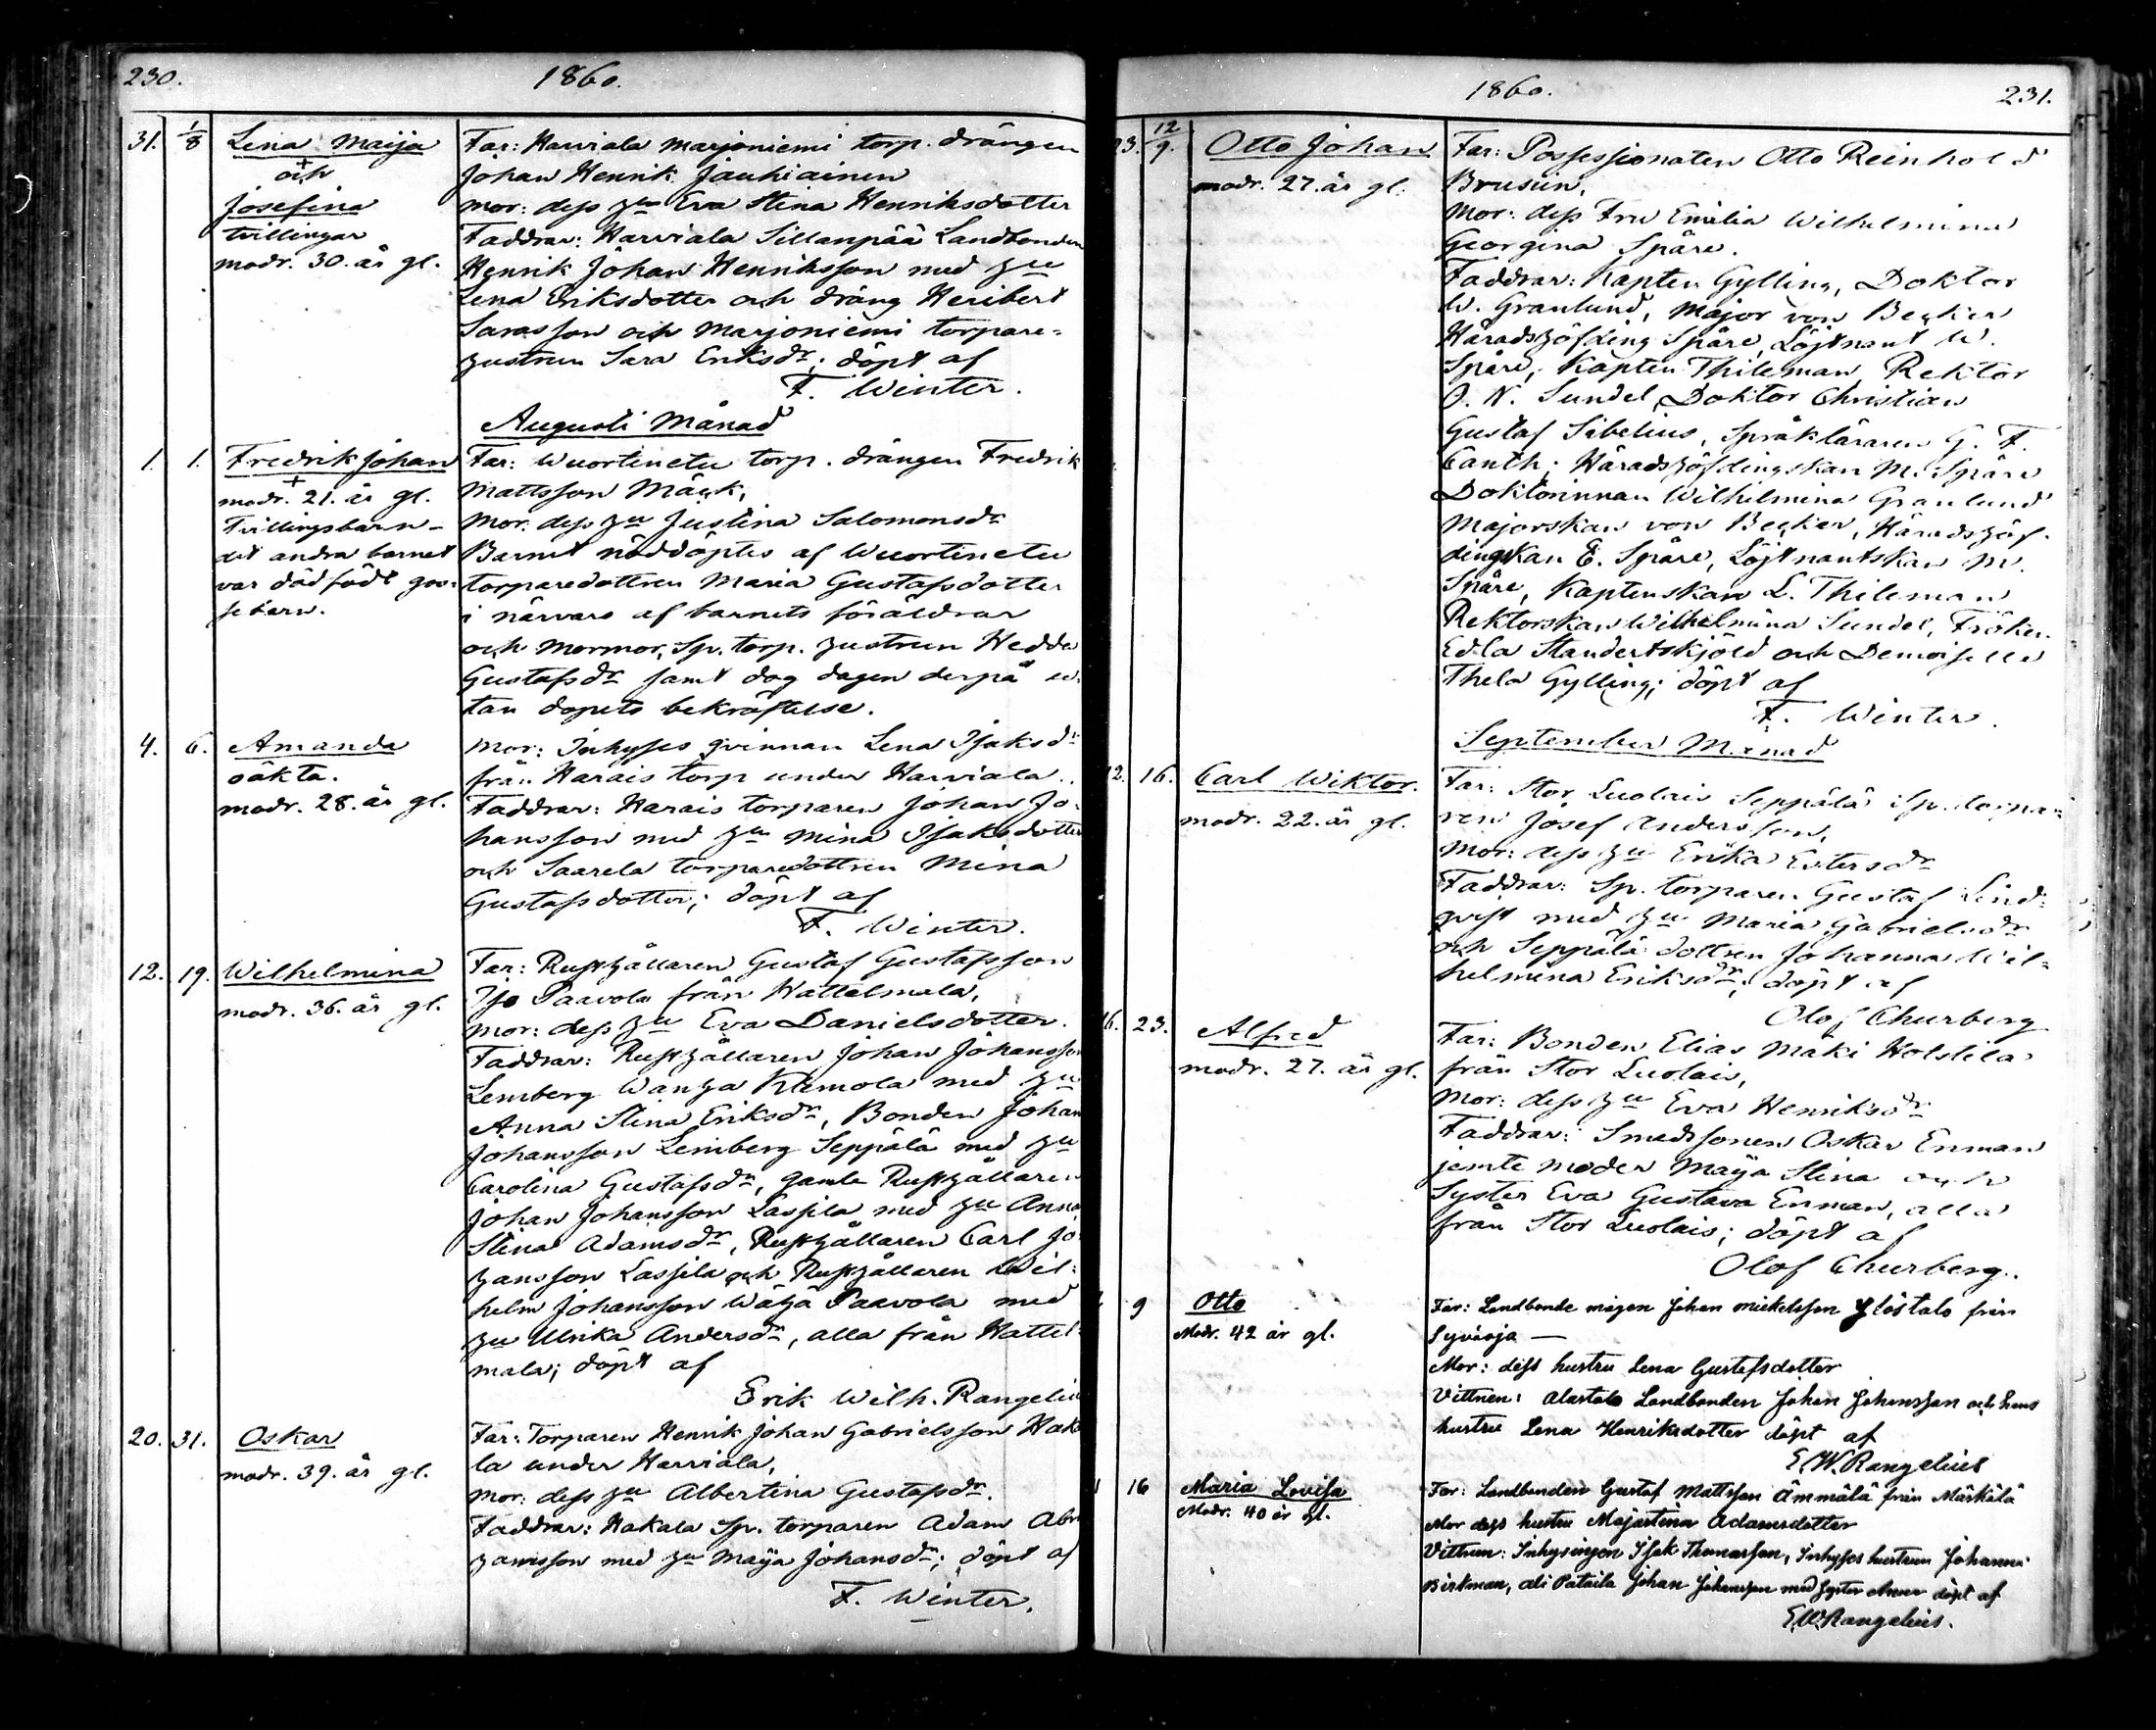 230.
1860.
31. 1/8 Lena Maija
+
och
Josefina
tvillingar
modr. 30. år gl.
Far: Harviala Marjoniemi torp. drängen
Johan Henrik Jauhiainen
Mor: dess hu Eva Stina Henriksdotter
Faddrar: Harviala Sillanpää Landbonden
Henrik Johan Henriksson med hu
Lena Eriksdotter och dräng Heribert
Sarasson och Marjoniemi torpare-
hustrun Sara Eriksdr; döpt af
F. Winter.
Augusti Månad
1. 1. Fredrik Johan
+
modr. 21. år gl.
Tvillingsbarn-
det andra barnet
var dödfödt gos-
sebarn.
Far: Wuortinetu torp. drängen Fredrik
Mattsson Mäck,
Mor: dess hu Justina Salomonsdr
Barnet nöddöptes af Wuortinetu
torparedottren Maria Gustafsdotter
i närvaro af barnets föräldrar
och mormor, Sp. torp. hustrun Hedda
Gustafsdr samt dog dagen derpå u-
tan dopets bekräftelse.
4. 6. Amanda
oäkta.
modr. 28. år gl.
Mor: Inhyses qvinnan Lena Isaksdr
från Harais torp under Harviala.
Faddrar: Harais torparen Johan Jo-
hansson med hu Mina Isaksdotter
och Saarela torparedottren Mina
Gustafsdotter; döpt af
F. Winter.
12. 19. Wilhelmina
modr. 36. år gl.
Far: Rusthållaren Gustaf Gustafsson
Iso Paavola från Hattelmala,
Mor: dess hu Eva Danielsdotter.
Faddrar: Rusthållaren Johan Johansson
Lemberg Wanha Klemola med hu
Anna Stina Eriksdr, Bonden Johan
Johansson Lemberg Seppälä med hu
Carolina Gustafsdr, gamle Rusthållaren
Johan Johansson Lassila med hu Anna
Stina Adamsdr, Rusthållaren Carl Jo-
hansson Lassila och Rusthållaren Wil-
helm Johansson Wähä Paavola med
hu Ulrika Andersdr, alla från Hattel-
mala; döpt af
Erik Wilh. Rangelius
20. 31. Oskar
modr. 39. år gl.
Far: Torparen Henrik Johan Gabrielsson Haka
la under Harviala,
Mor: dess hu Albertina Gustafsdr.
Faddrar: Hakala Sp. torparen Adam Abra
hamsson med hu Maija Johansdr; döpt af
F. Winter.
1860.
231.
23. 12/9. Otto Johan
modr. 27. år gl.
Far: Possessionaten Otto Reinhold
Brusiin,
Mor: dess Fru Emilia Wilhelmina
Georgina Spåre.
Faddrar: Kapten Gylling, Doktor
W. Granlund, Major von Becker
Häradshöfding Spåre, Löjtnant W.
Spåre, Kapten Thileman, Rektor
O. N. Sundel, Doktor Christian
Gustaf Sibelius, Språkläraren G. F.
Canth; Häradshöfdingskan M. Spåre
Doktorinnan Wilhelmina Granlund
Majorskan von Becker, Häradshöf-
dingskan E. Spåre, Löjtnantskan M.
Spåre, Kaptenskan L. Thileman
Rektorskan Wilhelmina Sundel, Fröken
Edla Standertskjöld och Demoiselle
Thela Gylling; döpt af
F. Winter.
September Månad
12. 16. Carl Wiktor.
modr. 22. år gl.
Far: Stor Luolais Seppälä Sp. torpa-
ren Josef Andersson,
Mor: dess hu Erika Estersdr
Faddrar: Sp. torparen Gustaf Lind-
qvist med hu Maria Gabrielsdr
och Seppälä dottren Johanna Wil-
helmina Eriksdr; döpt af
Olof Churberg
16. 23. Alfred
modr. 27. år gl.
Far: Bonden Elias Mäki Holstila
från Stor Luolais,
Mor: dess hu Eva Henriksdr
Faddrar: Smedssonen Oskar Enman
jemte moder Maija Stina och
Syster Eva Gustava Enman, alla
från Stor Luolais; döpt af
Olof Churberg.
9 Otto
Modr. 42 år gl.
Far: Landbonde mågen Johan Mickelsson Ylöstalo från
Syväoja —
Mor: dess hustru Lena Gustafsdotter
Vittnen: Alastalo Landbonden Johan Johansson och hans
hustru Lena Henriksdotter döpt af
E.W. Rangelius
16 Maria Lovisa
Modr. 40 år gl.
Far: Landbonden Gustaf Mattsson Ämmälä från Märkälä
Mor dess hustru Majastina Adamsdotter
Vittnen: Inhysingen Isak Thomasson, Inhyses hustrun Johanna
Birkman, Ali Pataila Johan Johansson med Syster Anna döpt af
E.W. Rangelius.